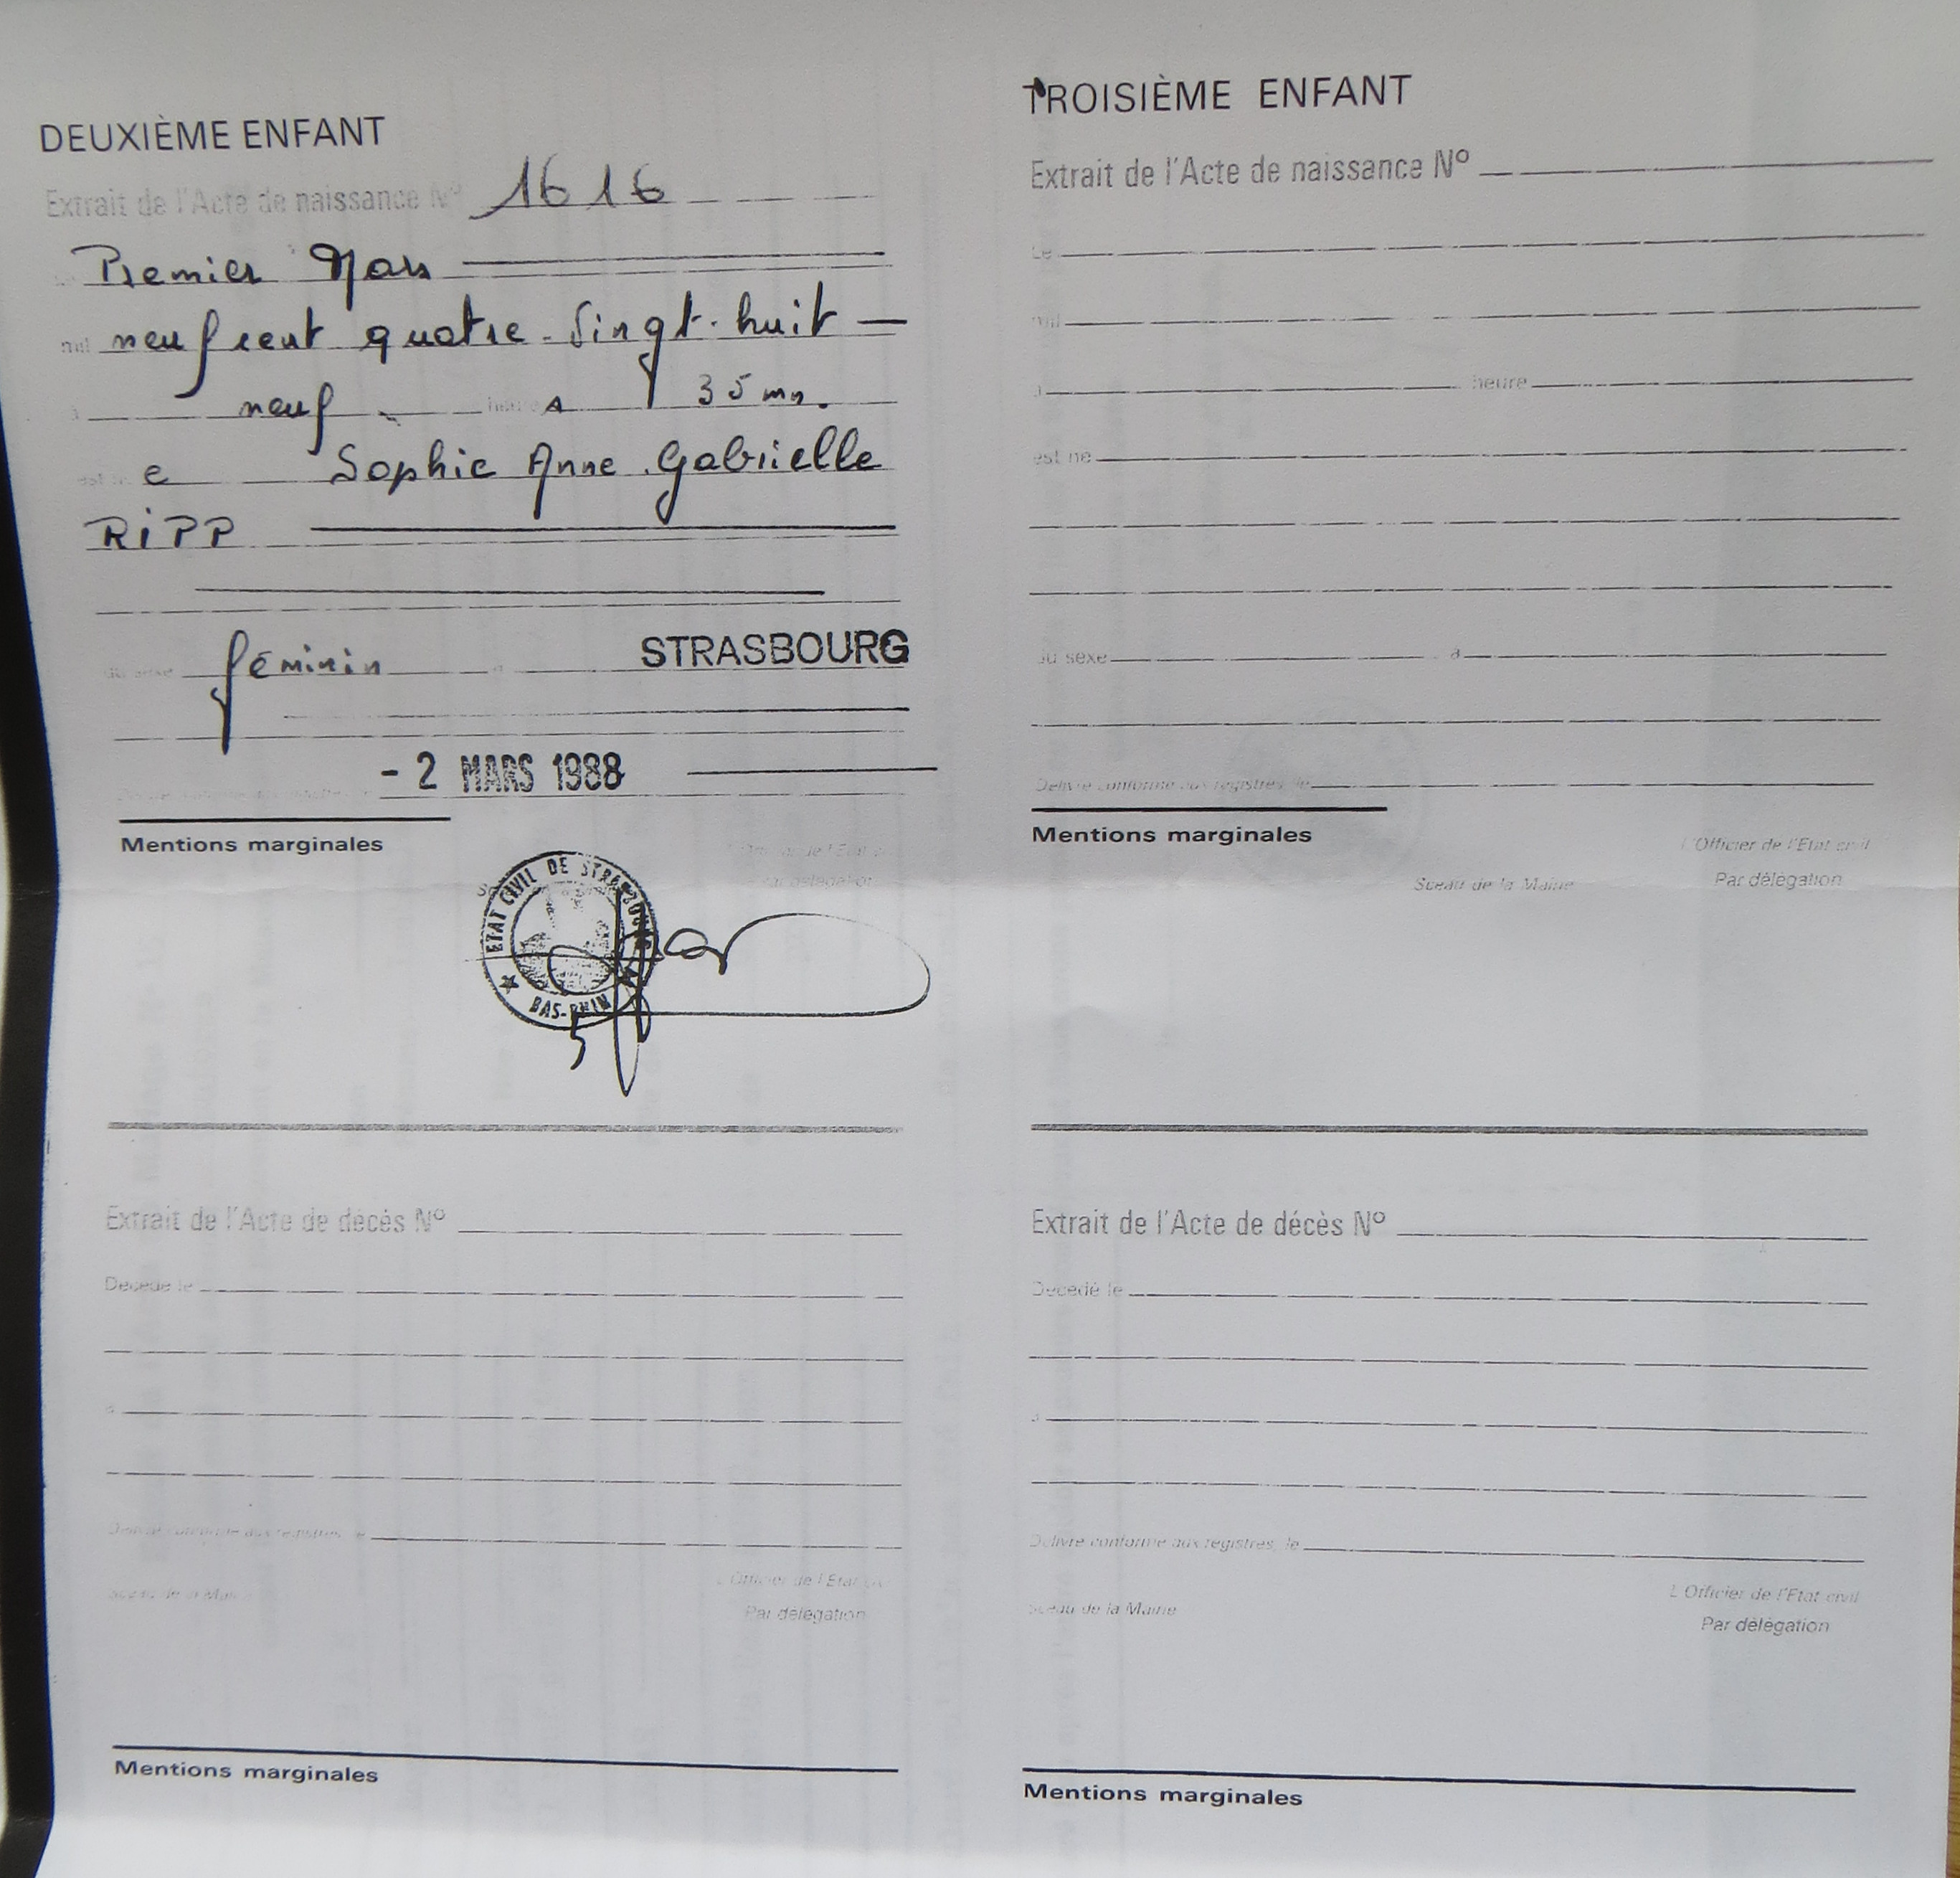 DEUXIÈME ENFANT
Extrait de l'Acte de naissance Nº 1616
Premier Mars
mil neuf cent quatre-vingt-huit
à neuf heure s 35 mn.
est né e Sophie Anne Gabrielle
RiPP
du sexe féminin à STRASBOURG
- 2 MARS 1988
Mentions marginales
L'Officier de l'Etat civil
Par délégation
ETAT CIVIL DE STRASBOURG
BAS-RHIN
Extrait de l'Acte de décès Nº
Décédé le
à
Délivré conforme aux registres, le
Sceau de la Mairie
L'Officier de l'Etat civil
Par délégation
Mentions marginales
TROISIÈME ENFANT
Extrait de l'Acte de naissance Nº
Le
mil
à heure
est né
du sexe à
Délivré conforme aux registres, le
Mentions marginales
L'Officier de l'Etat civil
Sceau de la Mairie Par délégation
Extrait de l'Acte de décès Nº
Décédé le
à
Délivré conforme aux registres, le
L'Officier de l'Etat civil
Sceau de la Mairie
Par délégation
Mentions marginales